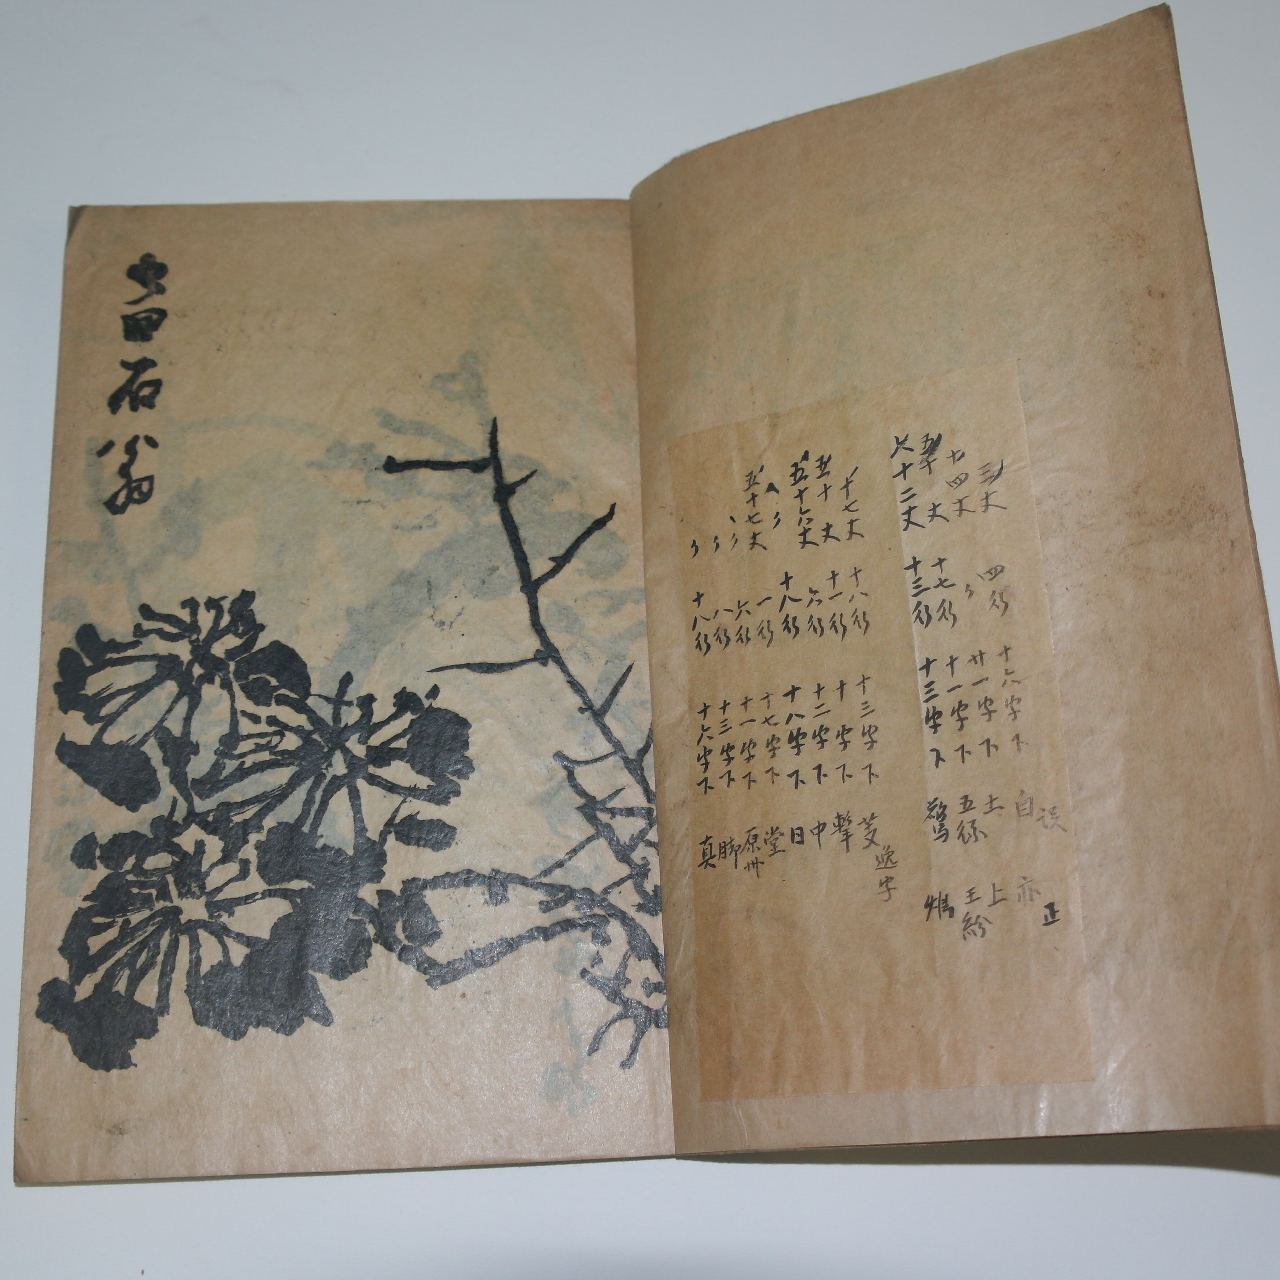 誤 正
三丈 四行 十六字下 白 亦
十四丈 〃 廿一字下 土 上
丈 十七行 十一字下 五 王紛
六十二丈 十三行 十三字下
逸字
十七丈 十八行 十三字下 芟
五十丈 十一行 十字下 擊
五十六丈 六行 十二字下 中
〃 十八行 十八字下 日
五十七丈 一行 十七字下 堂
〃 六行 十一字下 原卌
〃 八行 十三字下 脚
〃 十八行 十六字下 真
田石翁